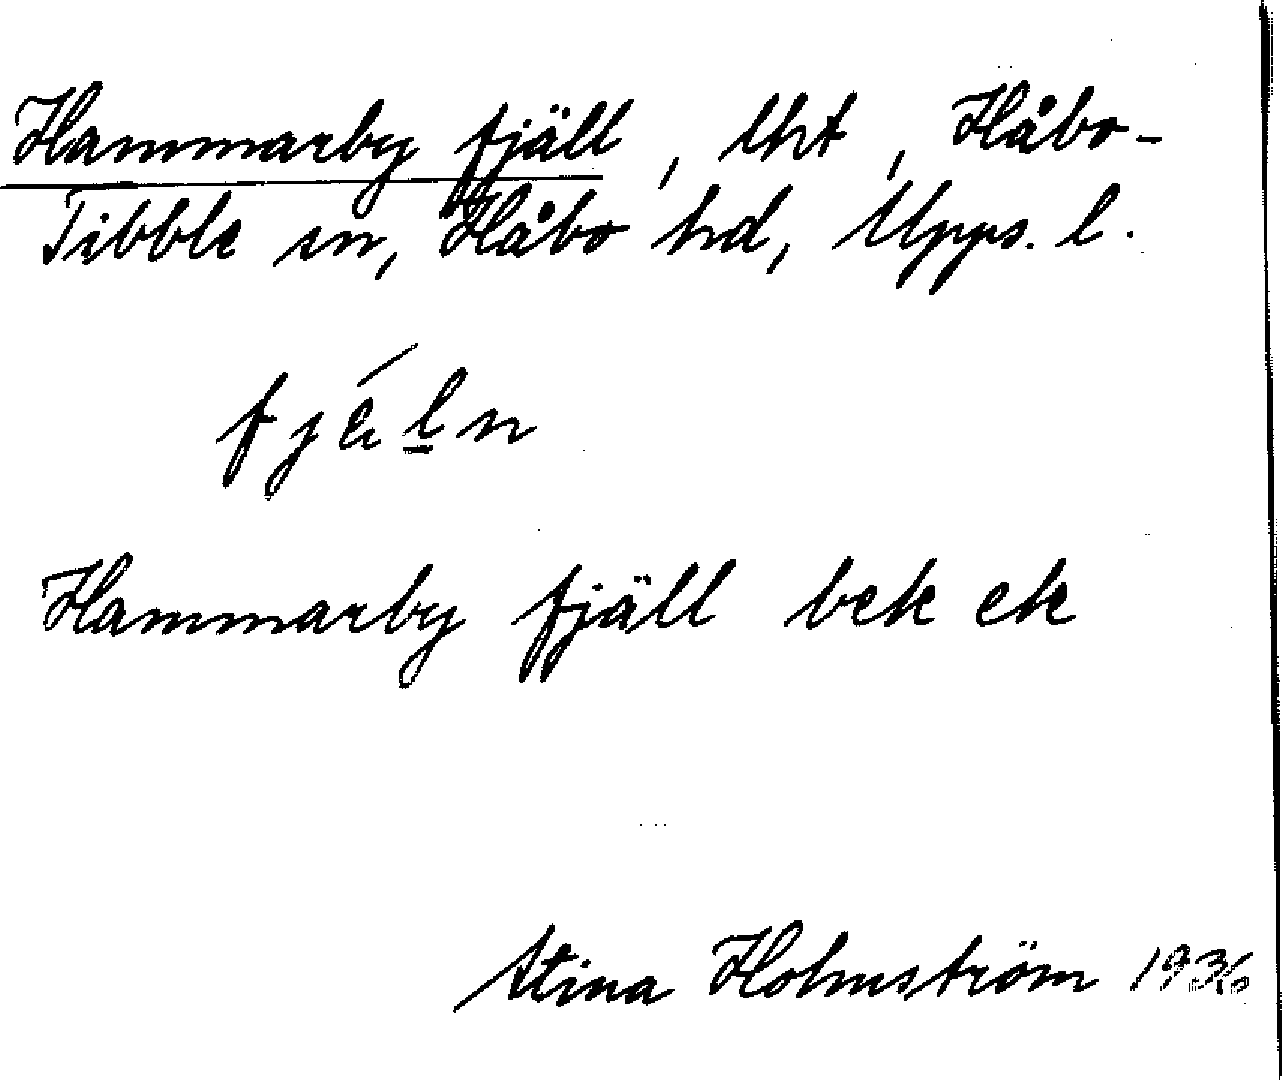 Hammarby fjäll, lht, Håbo-
Tibble sn, Håbo hd, Upps. l.
Hammarby fjäll bek ek
Stina Holmström 1936